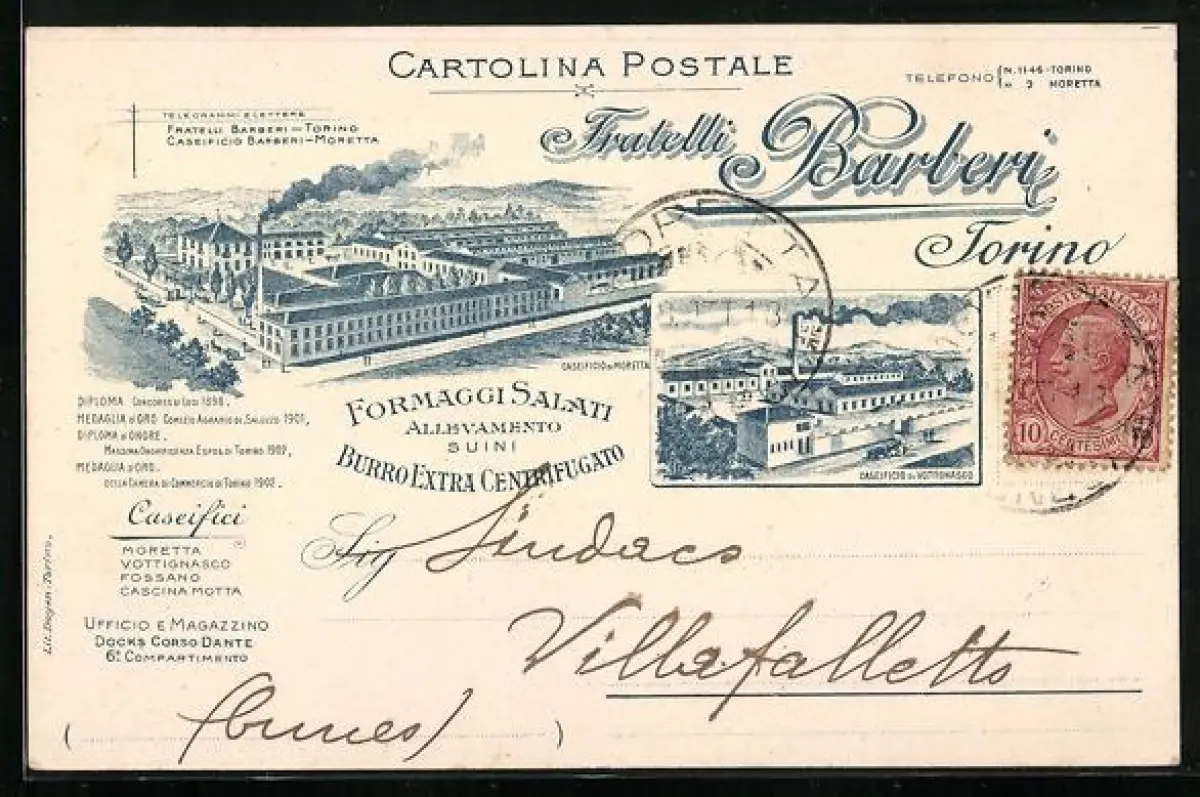 CARTOLINA POSTALE
TELEFONO { N. 1146 - TORINO
" 3 MORETTA
TELEGRAMMI E LETTERE
FRATELLI BARBERI - TORINO
CASEIFICIO BARBERI - MORETTA
Fratelli Barberi
Torino
MORETTA
POSTE ITALIANE
10 CENTESIMI
CASEIFICIO DI MORETTA
CASEIFICIO DI VOTTIGNASCO
DIPLOMA CONCORSO DI LODI 1898.
MEDAGLIA D'ORO COMIZIO AGRARIO DI SALUZZO 1901,
DIPLOMA D'ONORE.
MASSIMA ONORIFICENZA ESPOS. DI TORINO 1902,
MEDAGLIA D'ORO.
DELLA CAMERA DI COMMERCIO DI TORINO 1902.
FORMAGGI SALATI
ALLEVAMENTO
SUINI
BURRO EXTRA CENTRIFUGATO
Caseifici
MORETTA
VOTTIGNASCO
FOSSANO
CASCINA MOTTA
UFFICIO E MAGAZZINO
DOCKS CORSO DANTE
6º COMPARTIMENTO
Lit. Doyen-Torino.
Sig Sindaco
Villafalletto
(Cuneo)